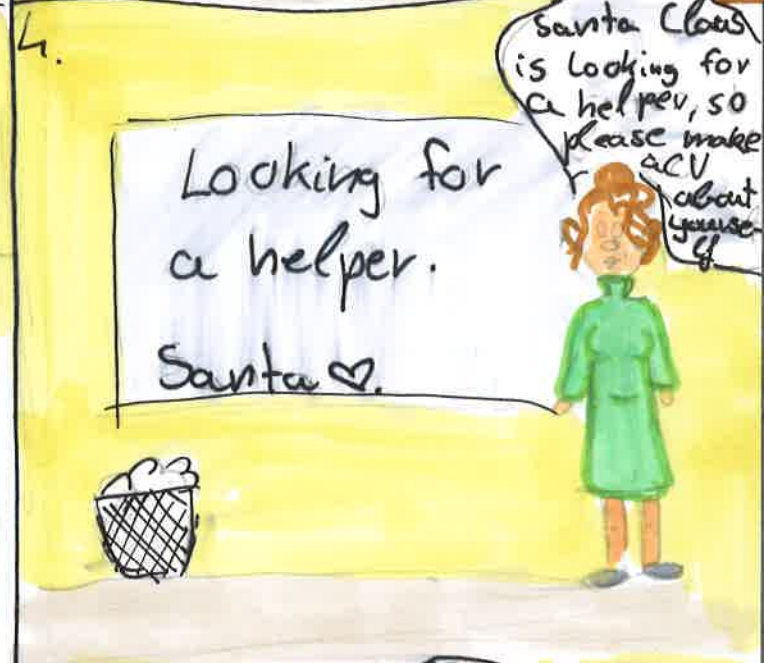 4.
Santa Claus
is looking for
a helper, so
please make
a CV
about
yourse-
lf
Looking for
a helper.
Santa ♡.